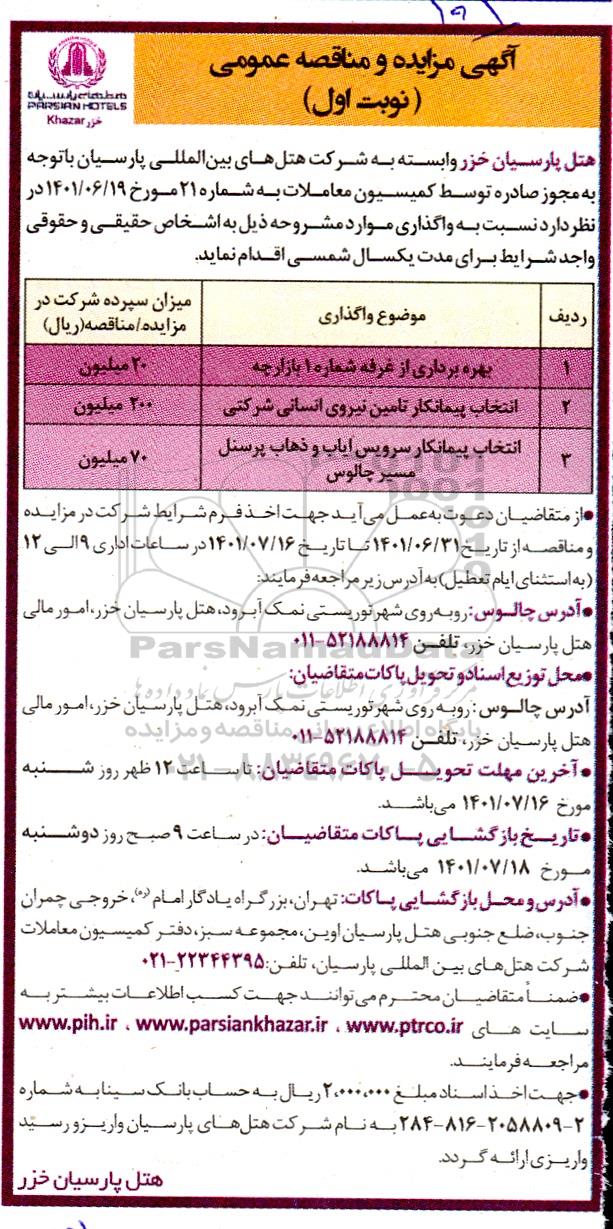 آگهی مزایده و مناقصه عمومی
(نوبت اول)
هتل‌های پارسیان
PARSIAN HOTELS
Khazar خزر
هتل پارسیان خزر وابسته به شرکت هتل‌های بین‌المللی پارسیان باتوجه
به مجوز صادره توسط کمیسیون معاملات به شماره ۲۱ مورخ ۱۴۰۱/۰۶/۱۹ در
نظر دارد نسبت به واگذاری موارد مشروحه ذیل به اشخاص حقیقی و حقوقی
واجد شرایط برای مدت یکسال شمسی اقدام نماید.
ردیف موضوع واگذاری میزان سپرده شرکت در مزایده/مناقصه(ریال)
۱ بهره برداری از غرفه شماره ۱ بازارچه ۲۰ میلیون
۲ انتخاب پیمانکار تامین نیروی انسانی شرکتی ۲۰۰ میلیون
۳ انتخاب پیمانکار سرویس ایاب و ذهاب پرسنل مسیر چالوس ۷۰ میلیون
●از متقاضیان دعوت به‌عمل می‌آید جهت اخذ فرم شرایط شرکت در مزایده
و مناقصه از تاریخ ۱۴۰۱/۰۶/۳۱ تا تاریخ ۱۴۰۱/۰۷/۱۶ در ساعات اداری ۹ الی ۱۲
(به استثنای ایام تعطیل) به آدرس زیر مراجعه فرمایند:
●آدرس چالوس: روبه‌روی شهر توریستی نمک آبرود، هتل پارسیان خزر، امور مالی
هتل پارسیان خزر، تلفن ۵۲۱۸۸۸۱۴-۰۱۱
●محل توزیع اسناد و تحویل پاکات متقاضیان:
آدرس چالوس: روبه‌روی شهر توریستی نمک آبرود، هتل پارسیان خزر، امور مالی
هتل پارسیان خزر، تلفن ۵۲۱۸۸۸۱۴-۰۱۱
●آخرین مهلت تحویل پاکات متقاضیان: تا ساعت ۱۲ ظهر روز شنبه
مورخ ۱۴۰۱/۰۷/۱۶ می‌باشد.
●تاریخ بازگشایی پاکات متقاضیان: در ساعت ۹ صبح روز دوشنبه
مورخ ۱۴۰۱/۰۷/۱۸ می‌باشد.
●آدرس و محل بازگشایی پاکات: تهران، بزرگراه یادگار امام (ره)، خروجی چمران
جنوب، ضلع جنوبی هتل پارسیان اوین، مجموعه سبز، دفتر کمیسیون معاملات
شرکت هتل‌های بین المللی پارسیان، تلفن: ۲۲۳۴۴۳۹۵-۰۲۱
●ضمناً متقاضیان محترم می‌توانند جهت کسب اطلاعات بیشتر به
سایت های www.pih.ir ، www.parsiankhazar.ir ، www.ptrco.ir
مراجعه فرمایند.
●جهت اخذ اسناد مبلغ ۲،۰۰۰،۰۰۰ ریال به حساب بانک سینا به شماره
۲-۲۰۵۸۸۰۹-۸۱۶-۲۸۴ به نام شرکت هتل‌های پارسیان واریز و رسید
واریزی ارائه گردد.
هتل پارسیان خزر
ParsNamadData
مرکز فرآوری اطلاعات پارس نماد داده ها
پایگاه اطلاع رسانی مناقصه و مزایده
۰۲۱-۸۸۳۴۹۶۷۰-۵